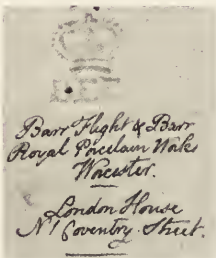 Barr Flight & Barr
Royal Porcelain Works
Worcester.
London House
N1 Coventry Street.